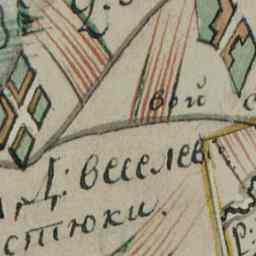 вой с
Д: веселев
стюки.